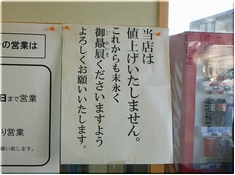 当店は
値上げいたしません。
これからも末永く
御贔屓くださいますよう
よろしくお願いいたします。
の営業は
日まで営業
り営業
致します。